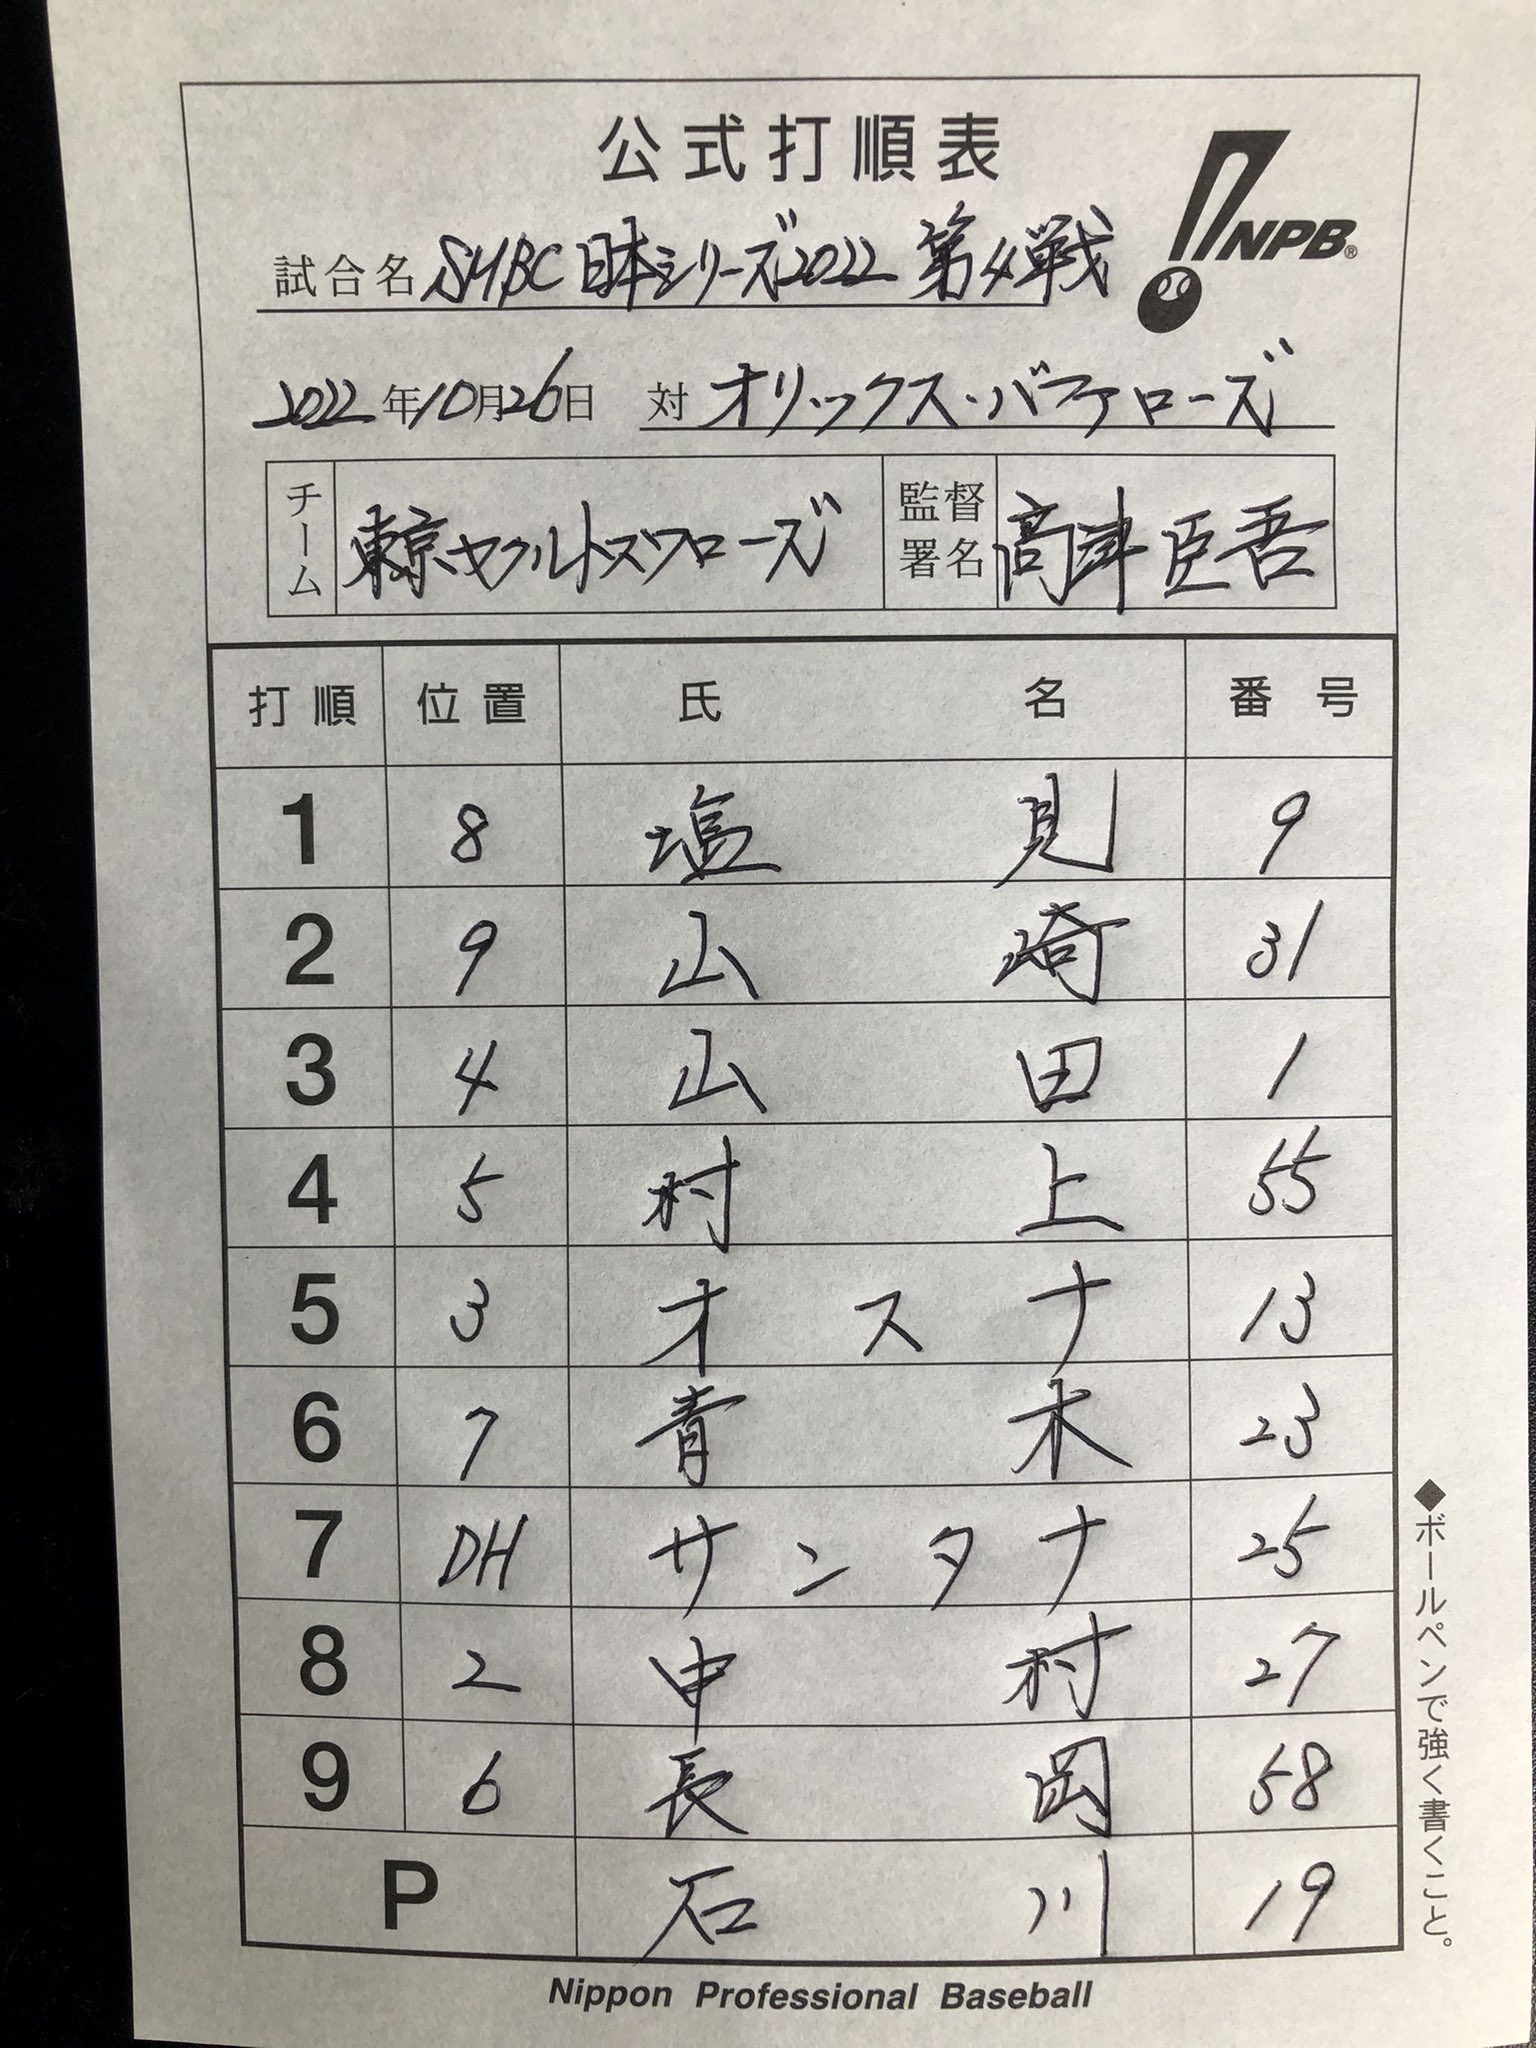 公式打順表
NPB®
試合名 SMBC日本シリーズ2022 第4戦
2022年10月26日 対 オリックス・バファローズ
チーム 東京ヤクルトスワローズ 監督署名 高津臣吾
打順 位置 氏名 番号
1 8 塩見 9
2 9 山崎 31
3 4 山田 1
4 5 村上 55
5 3 オスナ 13
6 7 青木 23
7 DH サンタナ 25
8 2 中村 27
9 6 長岡 58
P 石川 19
◆ボールペンで強く書くこと。
Nippon Professional Baseball